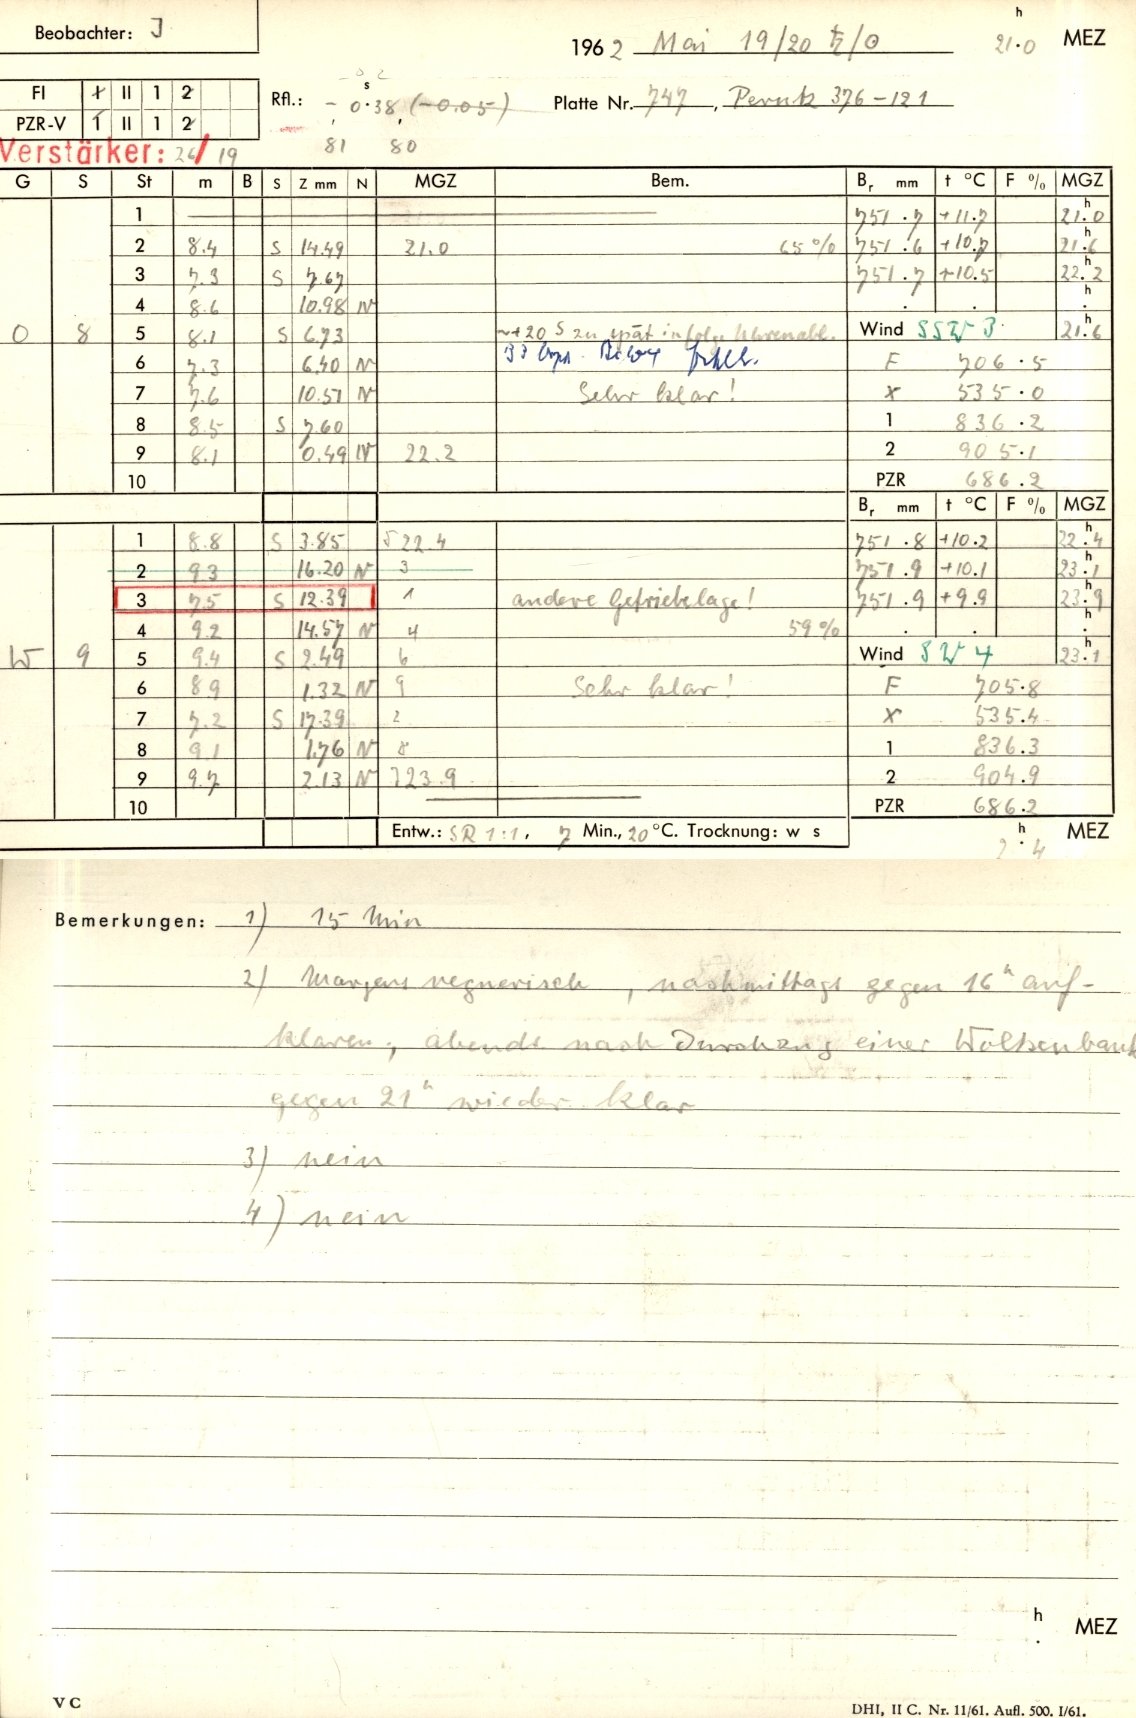 Beobachter: J
1962 Mai 19/20 ♄/☉ 21.0 h MEZ
FI I II 1 2
PZR-V I II 1 2
Rfl.: - 0.38 s (-0.05) Platte Nr. 747, Perutz 376-121
81 80
Verstärker: 26/19
G S St m B S Z mm N MGZ Bem. Br mm t °C F % MGZ
1 751.7 +11.7 21.0 h
2 8.4 S 14.49 21.0 65% 751.6 +10.7 21.6 h
3 7.3 S 7.67 751.7 +10.5 22.2 h
4 8.6 10.98 N . . h .
O 8 5 8.1 S 6.73 ~+20 s zu spät infolge Uhrenabl. Wind SSW 3 21.6 h
6 7.3 6.40 N F 706.5
7 7.6 10.51 N Sehr klar! X 535.0
8 8.5 S 7.60 1 836.2
9 8.1 0.49 N 22.2 2 905.1
10 PZR 686.2
Br mm t °C F % MGZ
1 8.8 S 3.85 5 22.4 751.8 +10.2 22.4 h
2 9.3 16.20 N 3 751.9 +10.1 23.1 h
3 7.5 S 12.39 1 andere Getriebelage! 751.9 +9.9 23.9 h
4 9.2 14.57 N 4 59% . . h .
W 9 5 9.4 S 2.49 6 Wind SW 4 23.1 h
6 8.9 1.32 N 9 Sehr klar! F 705.8
7 7.2 S 17.39 2 X 535.4
8 9.1 1.76 N 8 1 836.3
9 9.7 2.13 N 7 23.9 2 904.9
10 PZR 686.2
Entw.: SR 1:1, 7 Min., 20 °C. Trocknung: w s 2.4 h MEZ
Bemerkungen: 1) 15 Min
2) Morgens regnerisch, nachmittags gegen 16 h auf-
klaren, abends nach Durchzug einer Wolkenbank
gegen 21 h wieder klar
3) nein
4) nein
h . MEZ
V C DHI, II C. Nr. 11/61. Aufl. 500. I/61.